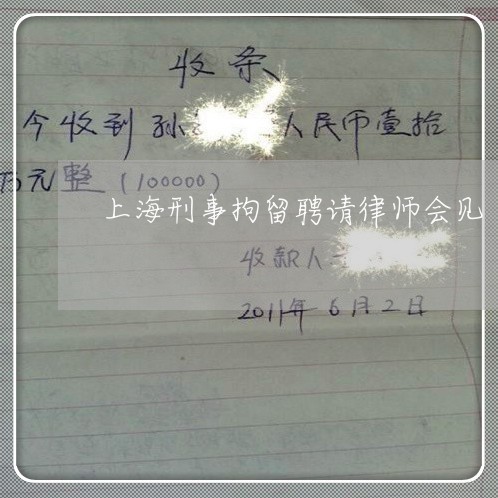 收条
今收到孙人民币壹拾
万元整(100000)
上海刑事拘留聘请律师会见
收款人
2011年6月2日